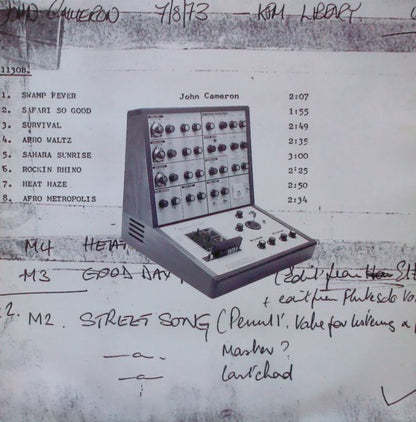 JOHN CAMERON 7/8/73 — KPM LIBRARY
1130B.
John Cameron
1. SWAMP FEVER 2:07
2. SAFARI SO GOOD 1:55
3. SURVIVAL 2:49
4. AFRO WALTZ 2:35
5. SAHARA SUNRISE 3:00
6. ROCKIN RHINO 2:25
7. HEAT HAZE 2:50
8. AFRO METROPOLIS 2:34
M4 HEAT
M3 GOOD DAY (edit from
+ edit from
2. M2. STREET SONG ( for listening
—a. Master?
—a Last chord